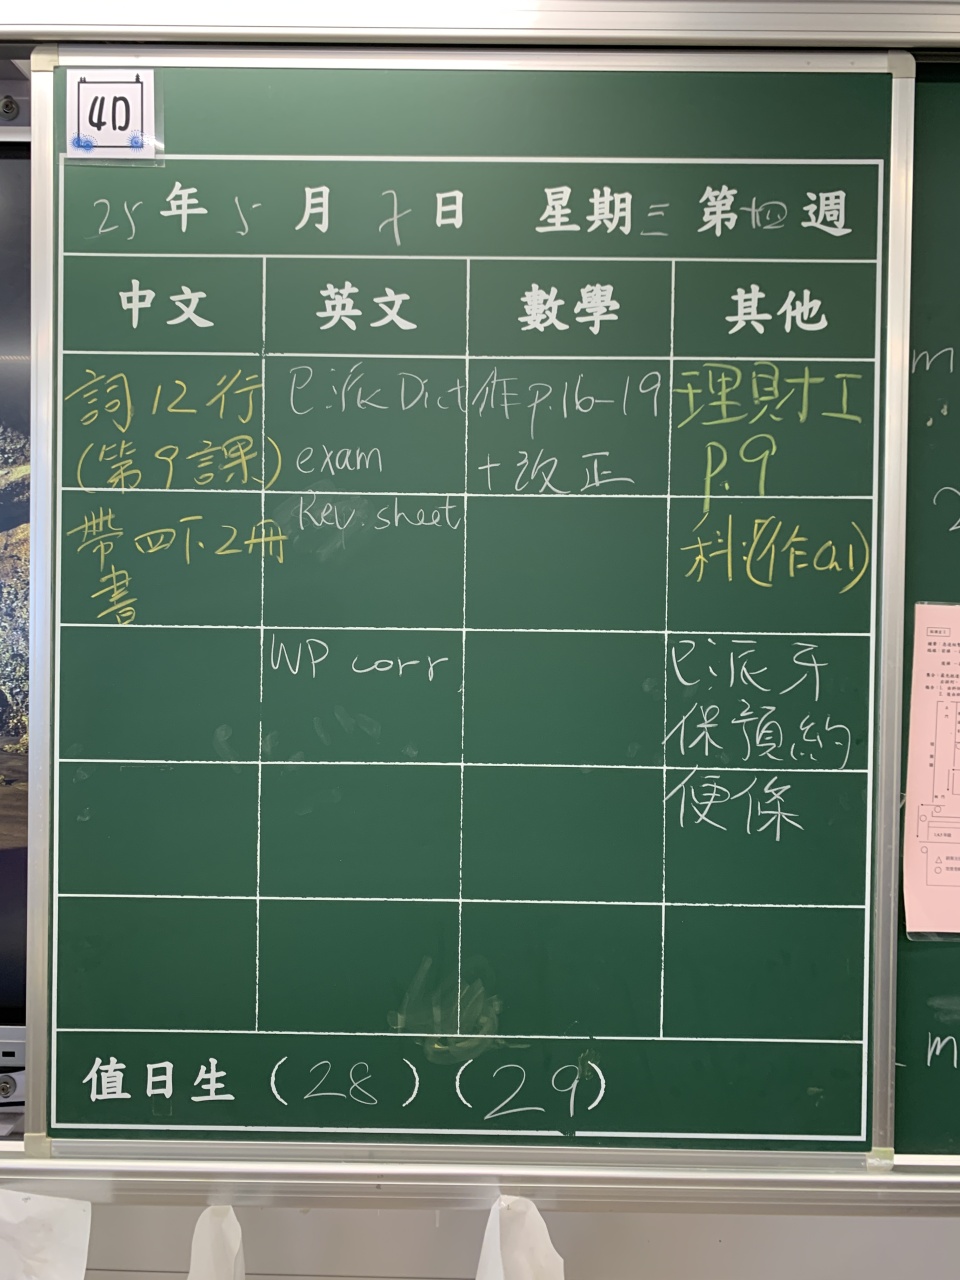 4D
25年5月7日 星期三 第十四週
中文 英文 數學 其他
詞12行
(第9課)
帶四下2冊
書
已派Dict
exam
Rev. sheet
WP corr.
作p.16-19
+改正
理財才工
p.9
科:(作ch1)
已派牙
保預約
便條
值日生(28)(29)
m
2
m